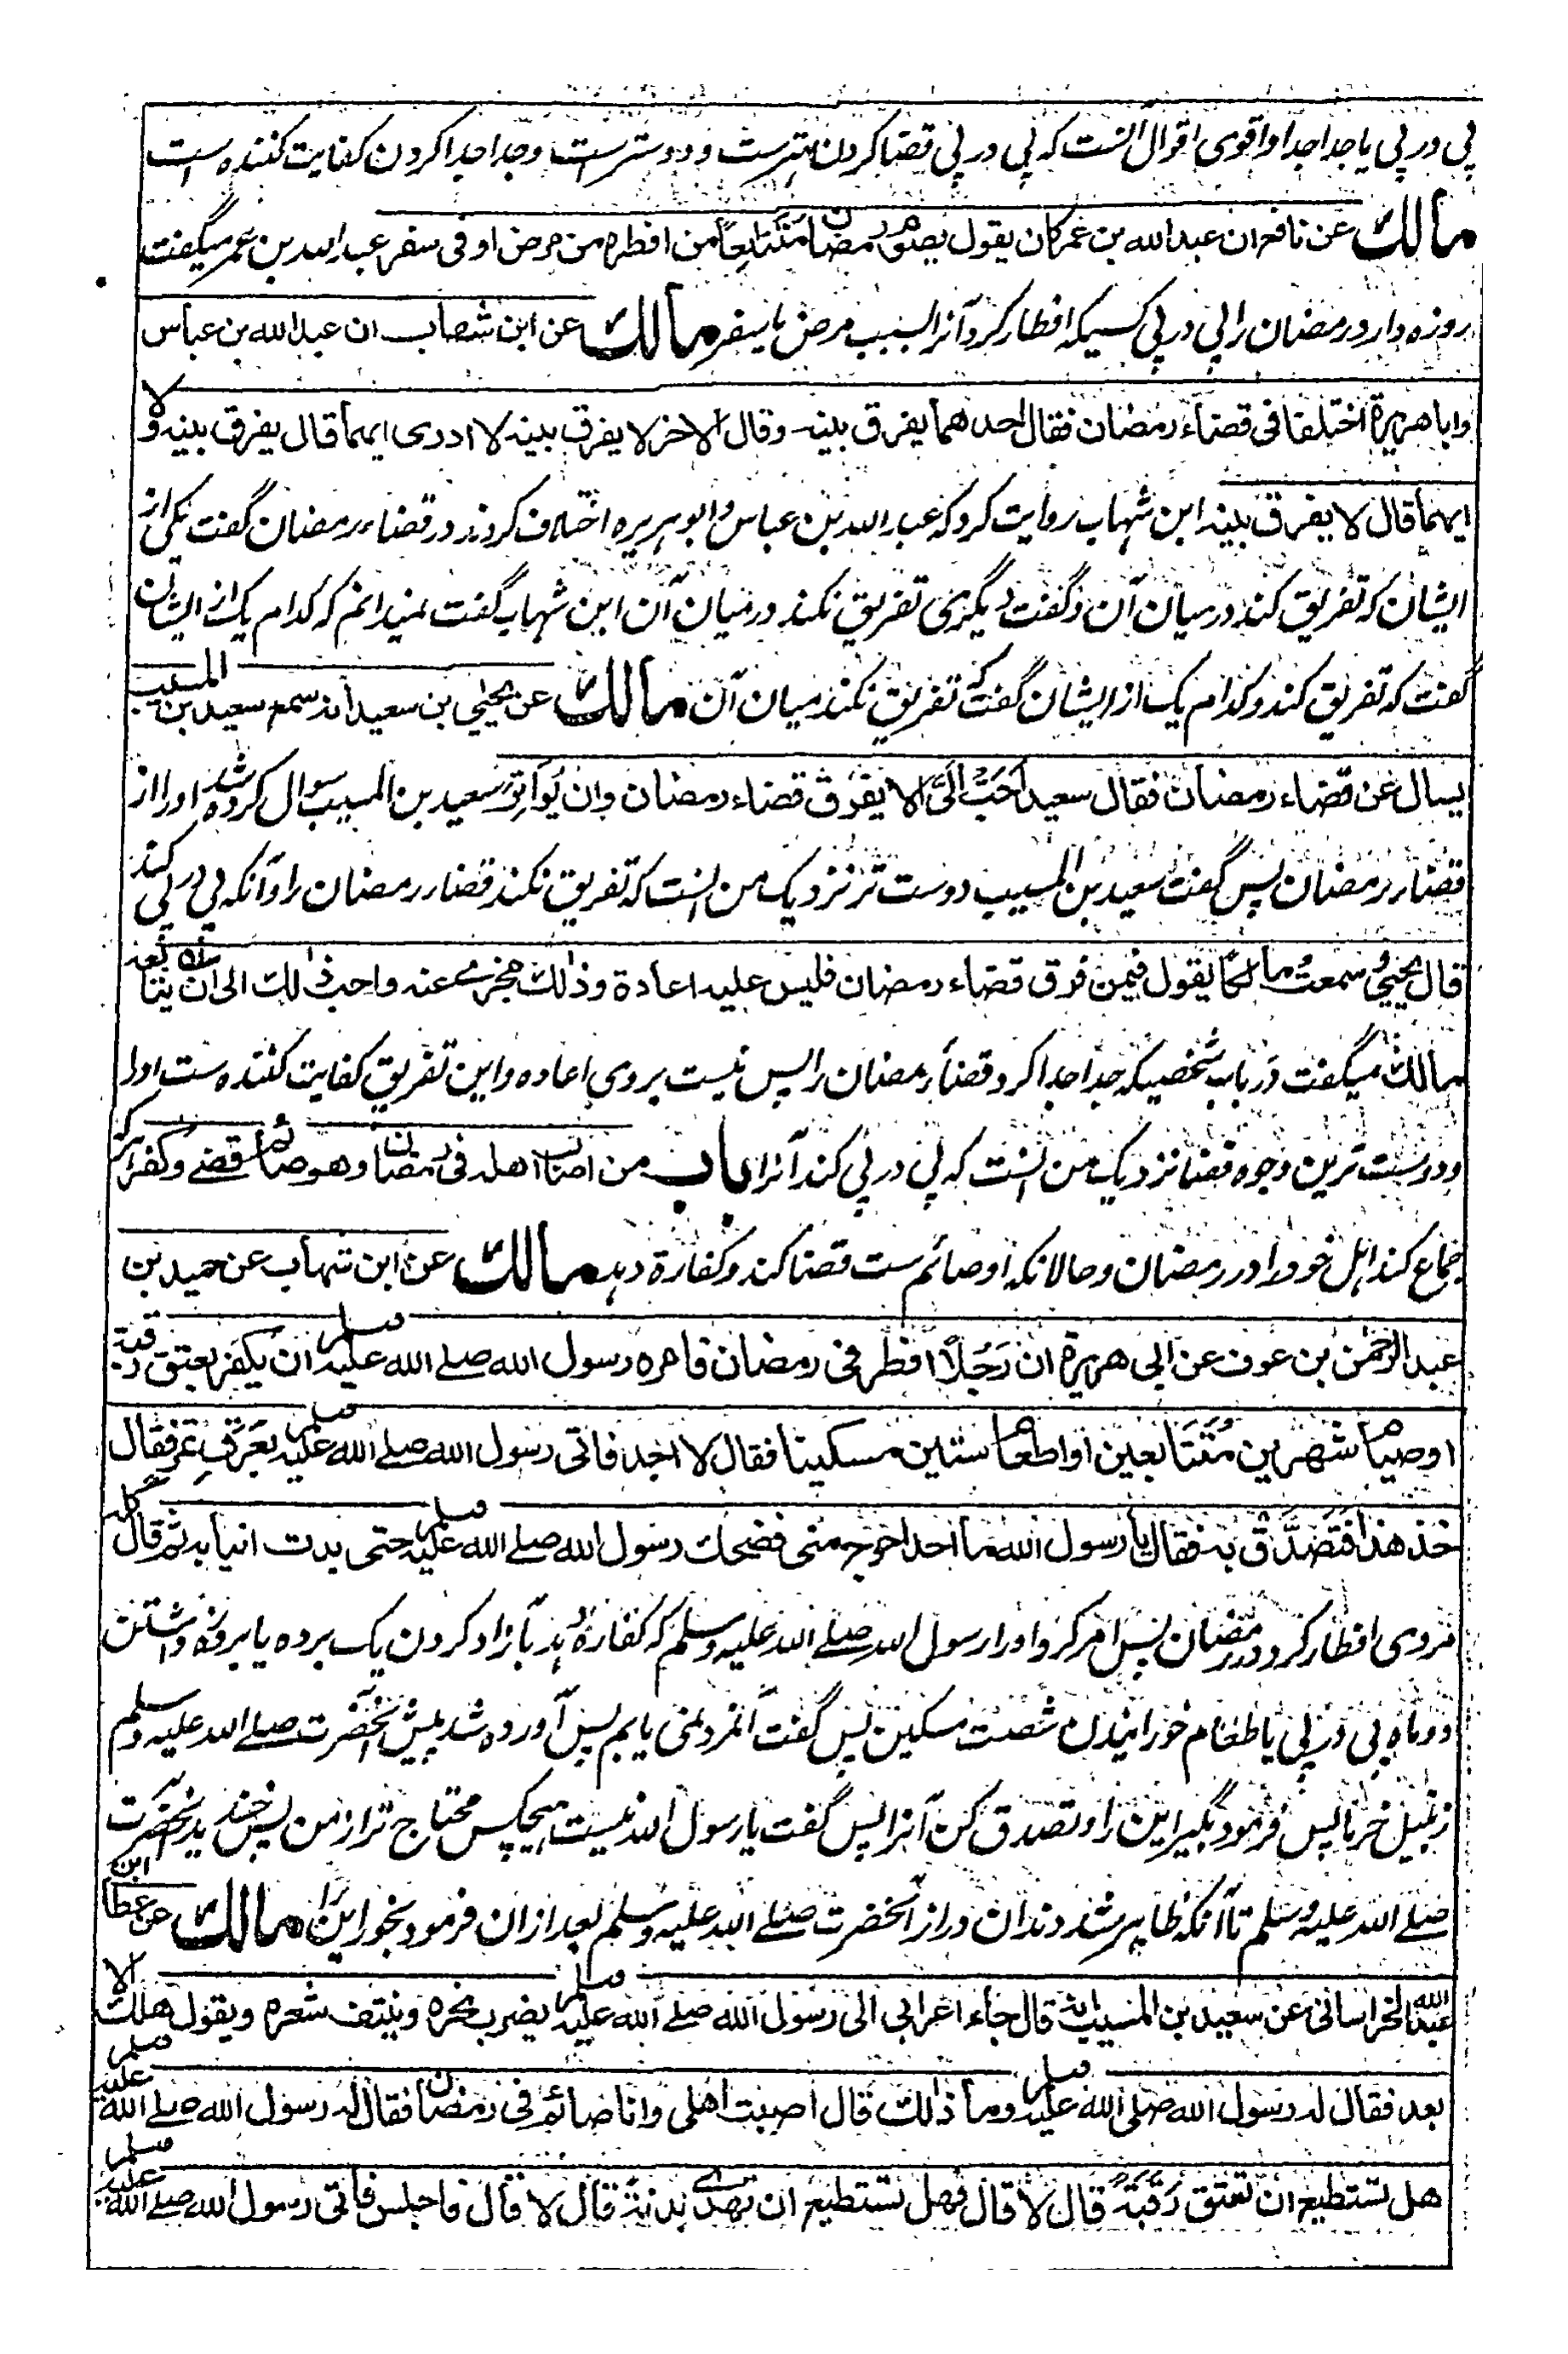 پی در پی یا جدا جدا و اقوی اقوال آنست که پی در پی قضا کردن بهترست و دوسترست و جدا جدا کردن کفایت کننده است
مالك عن نافع ان عبد الله بن عمر كان يقول يصوم رمضان متتابعًا من افطره من مرض او فى سفر عبد الله بن عمر میگفت
روزه دارد رمضان را پی در پی کسیکه افطار کرد آنرا بسبب مرض یا بسفر مالك عن ابن شهاب ان عبد الله بن عباس
وابا هريرة اختلفا فى قضاء رمضان فقال احدهما يفرق بينه وقال الاخر لا يفرق بينه لا ادرى ايهما قال يفرق بينه ولا
ايهما قال لا يفرق بينه ابن شهاب روایت کرد که عبد الله بن عباس و ابو هریره اختلاف کردند در قضاء رمضان گفت یکی از
ایشان که تفریق کند در میان آن و گفت دیگری تفریق نکند در میان آن ابن شهاب گفت نمیدانم که کدام یک از ایشان
گفت که تفریق کند و کدام یک از ایشان گفت که تفریق نکند میان آن مالك عن يحيى بن سعيد انه سمع سعيد بن المسيب
يسال عن قضاء رمضان فقال سعيد احب الىّ الا يفرق قضاء رمضان وان يواتر سعید بن المسیب سوال کرده شد او را از
قضاء رمضان پس گفت سعید بن المسیب دوست تر نزدیک من آنست که تفریق نکند قضاء رمضان را و آنکه پی در پی کند
قال يحيى سمعت مالكا يقول فيمن فرق قضاء رمضان فليس عليه اعادة وذلك مجزئ عنه واحب ذلك الى ان يتابعه
مالك میگفت در باب شخصیکه جدا جدا کرد قضاء رمضان را پس نیست بروی اعاده و این تفریق کفایت کننده ست او را
و دوست ترین وجوه قضا نزدیک من آنست که پی در پی کند آنرا باب من اصاب اهله فى رمضان وهو صائم قضى وكفر هر که
جماع کند اهل خود را در رمضان و حالانکه او صائم ست قضا کند و کفارة دهد مالك عن ابن شهاب عن حميد بن
عبد الرحمن بن عوف عن ابى هريرة ان رجلًا افطر فى رمضان فامره رسول الله صلے الله عليه وسلم ان يكفر بعتق رقبة
او صيام شهرين متتابعين او اطعام ستين مسكينا فقال لا اجد فاتى رسول الله صلے الله عليه وسلم بعرق تمر فقال
خذ هذا فتصدق به فقال يا رسول الله ما احد احوج منى فضحك رسول الله صلے الله عليه وسلم حتى بدت انيابه ثم قال كله
مردی افطار کرد در رمضان پس امر کرد او را رسول الله صلے الله علیه وسلم که کفاره دهد بآزاد کردن یک برده یا بروزه داشتن
دو ماه پی در پی یا طعام خورانیدن شصت مسکین پس گفت آنمرد نمی یابم پس آورده شد پیش آنحضرت صلے الله علیه وسلم
زنبیل خرما پس فرمود بگیر این را و تصدق کن آنرا پس گفت یا رسول الله نیست هیچکس محتاج تر از من پس خندید آنحضرت
صلے الله علیه وسلم تا آنکه ظاهر شد دندان دراز آنحضرت صلے الله علیه وسلم بعد ازان فرمود بخور این را مالك عن عطاء ابن
عبد الله الخراسانى عن سعيد بن المسيب انه قال جاء اعرابى الى رسول الله صلے الله عليه وسلم يضرب نحره وينتف شعره ويقول هلك الا
بعد فقال له رسول الله صلى الله عليه وسلم وما ذلك قال اصبت اهلى وانا صائم فى رمضان فقال له رسول الله صلے الله عليه وسلم
هل تستطيع ان تعتق رقبة قال لا قال فهل تستطيع ان تهدى بدنة قال لا قال فاجلس فاتى رسول الله صلے الله عليه وسلم